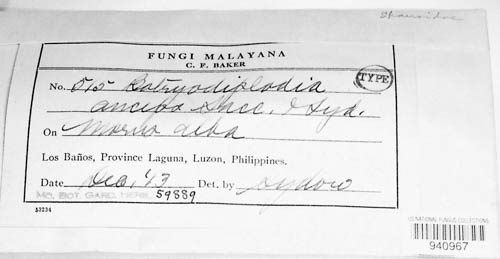 Sphaeroidae
FUNGI MALAYANA
C. F. BAKER
No. 515 Botryodiplodia TYPE
anceps Sacc. & Syd.
On Morus alba
Los Baños, Province Laguna, Luzon, Philippines.
Date Dec. '13 Det. by Sydow
MO. BOT. GARD. HERB. 59889
53234
US NATIONAL FUNGUS COLLECTIONS
940967